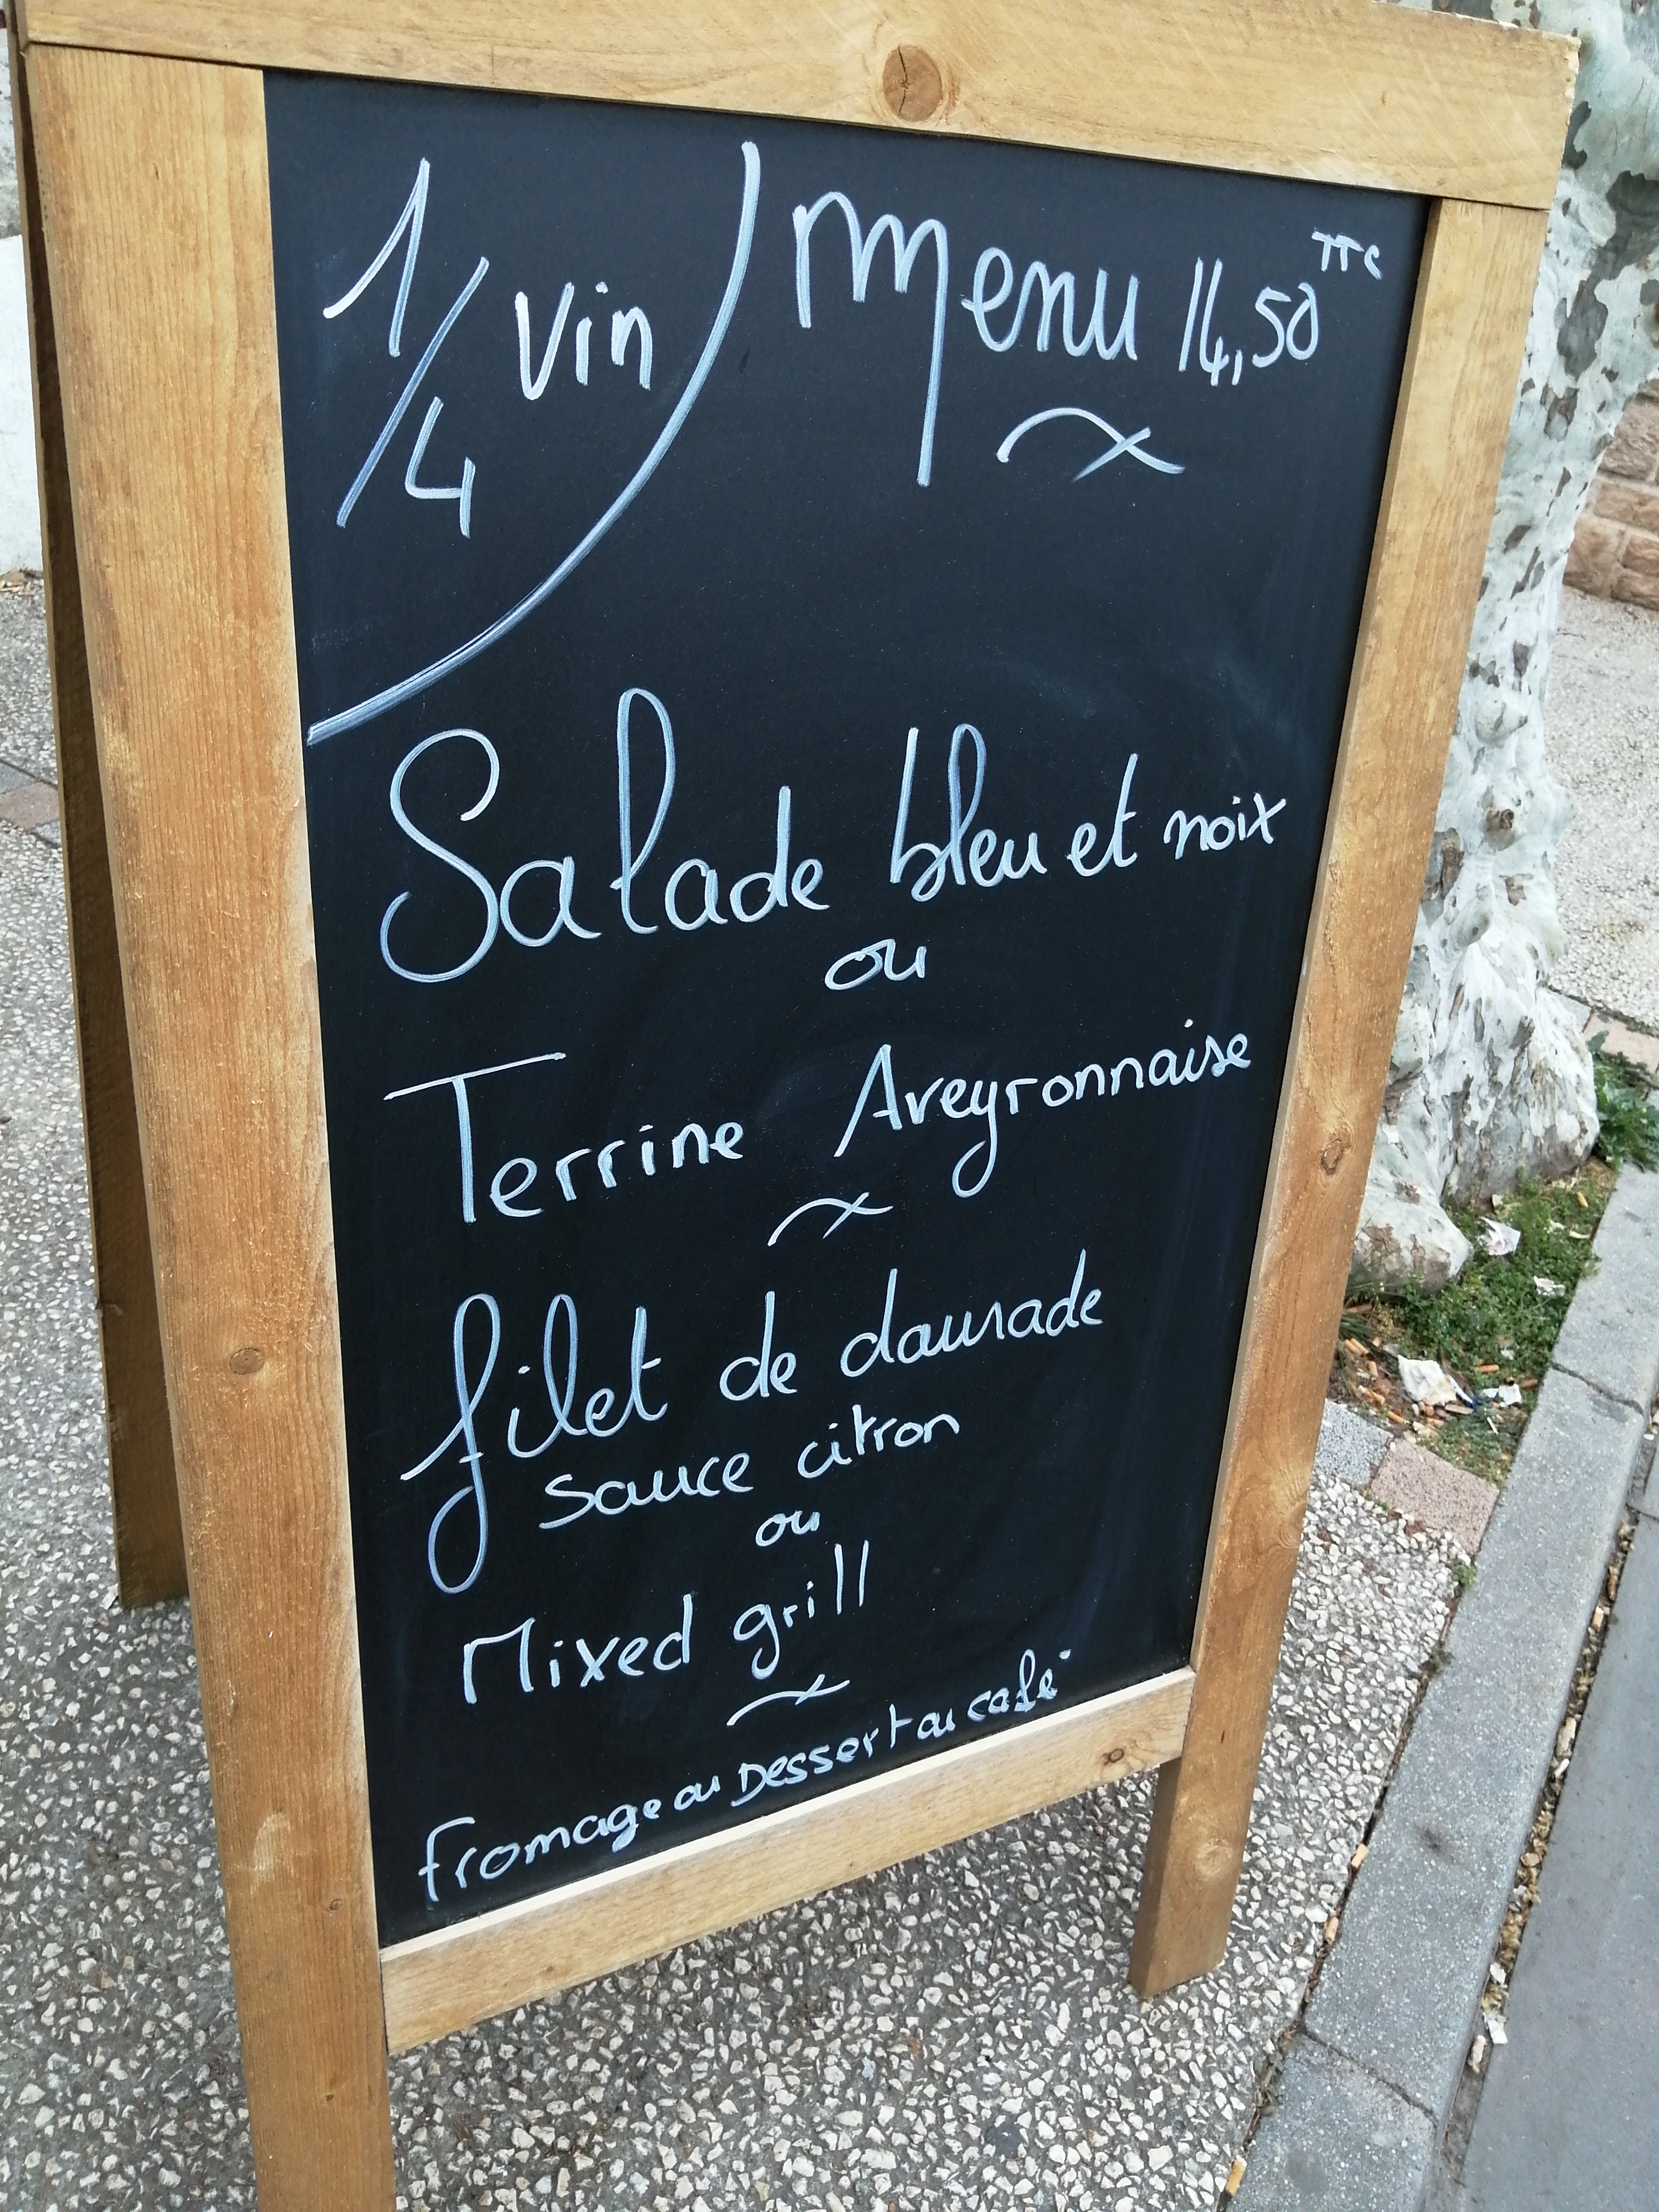 1/4 vin
Menu 14,50 TTC
Salade bleu et noix
ou
Terrine Aveyronnaise
filet de daurade
sauce citron
ou
Mixed grill
fromage ou Dessert ou café